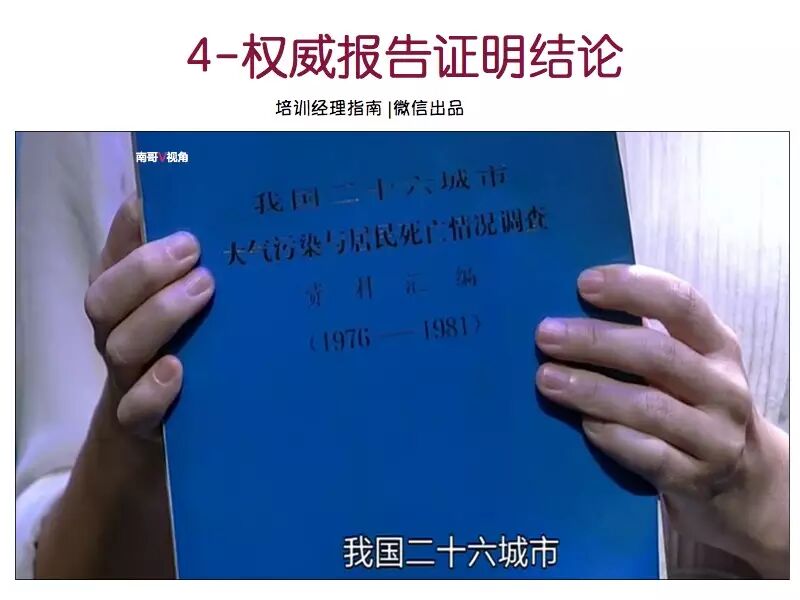 4-权威报告证明结论
培训经理指南 |微信出品
南哥V视角
我国二十六城市
大气污染与居民死亡情况调查
资料汇编
(1976—1981)
我国二十六城市